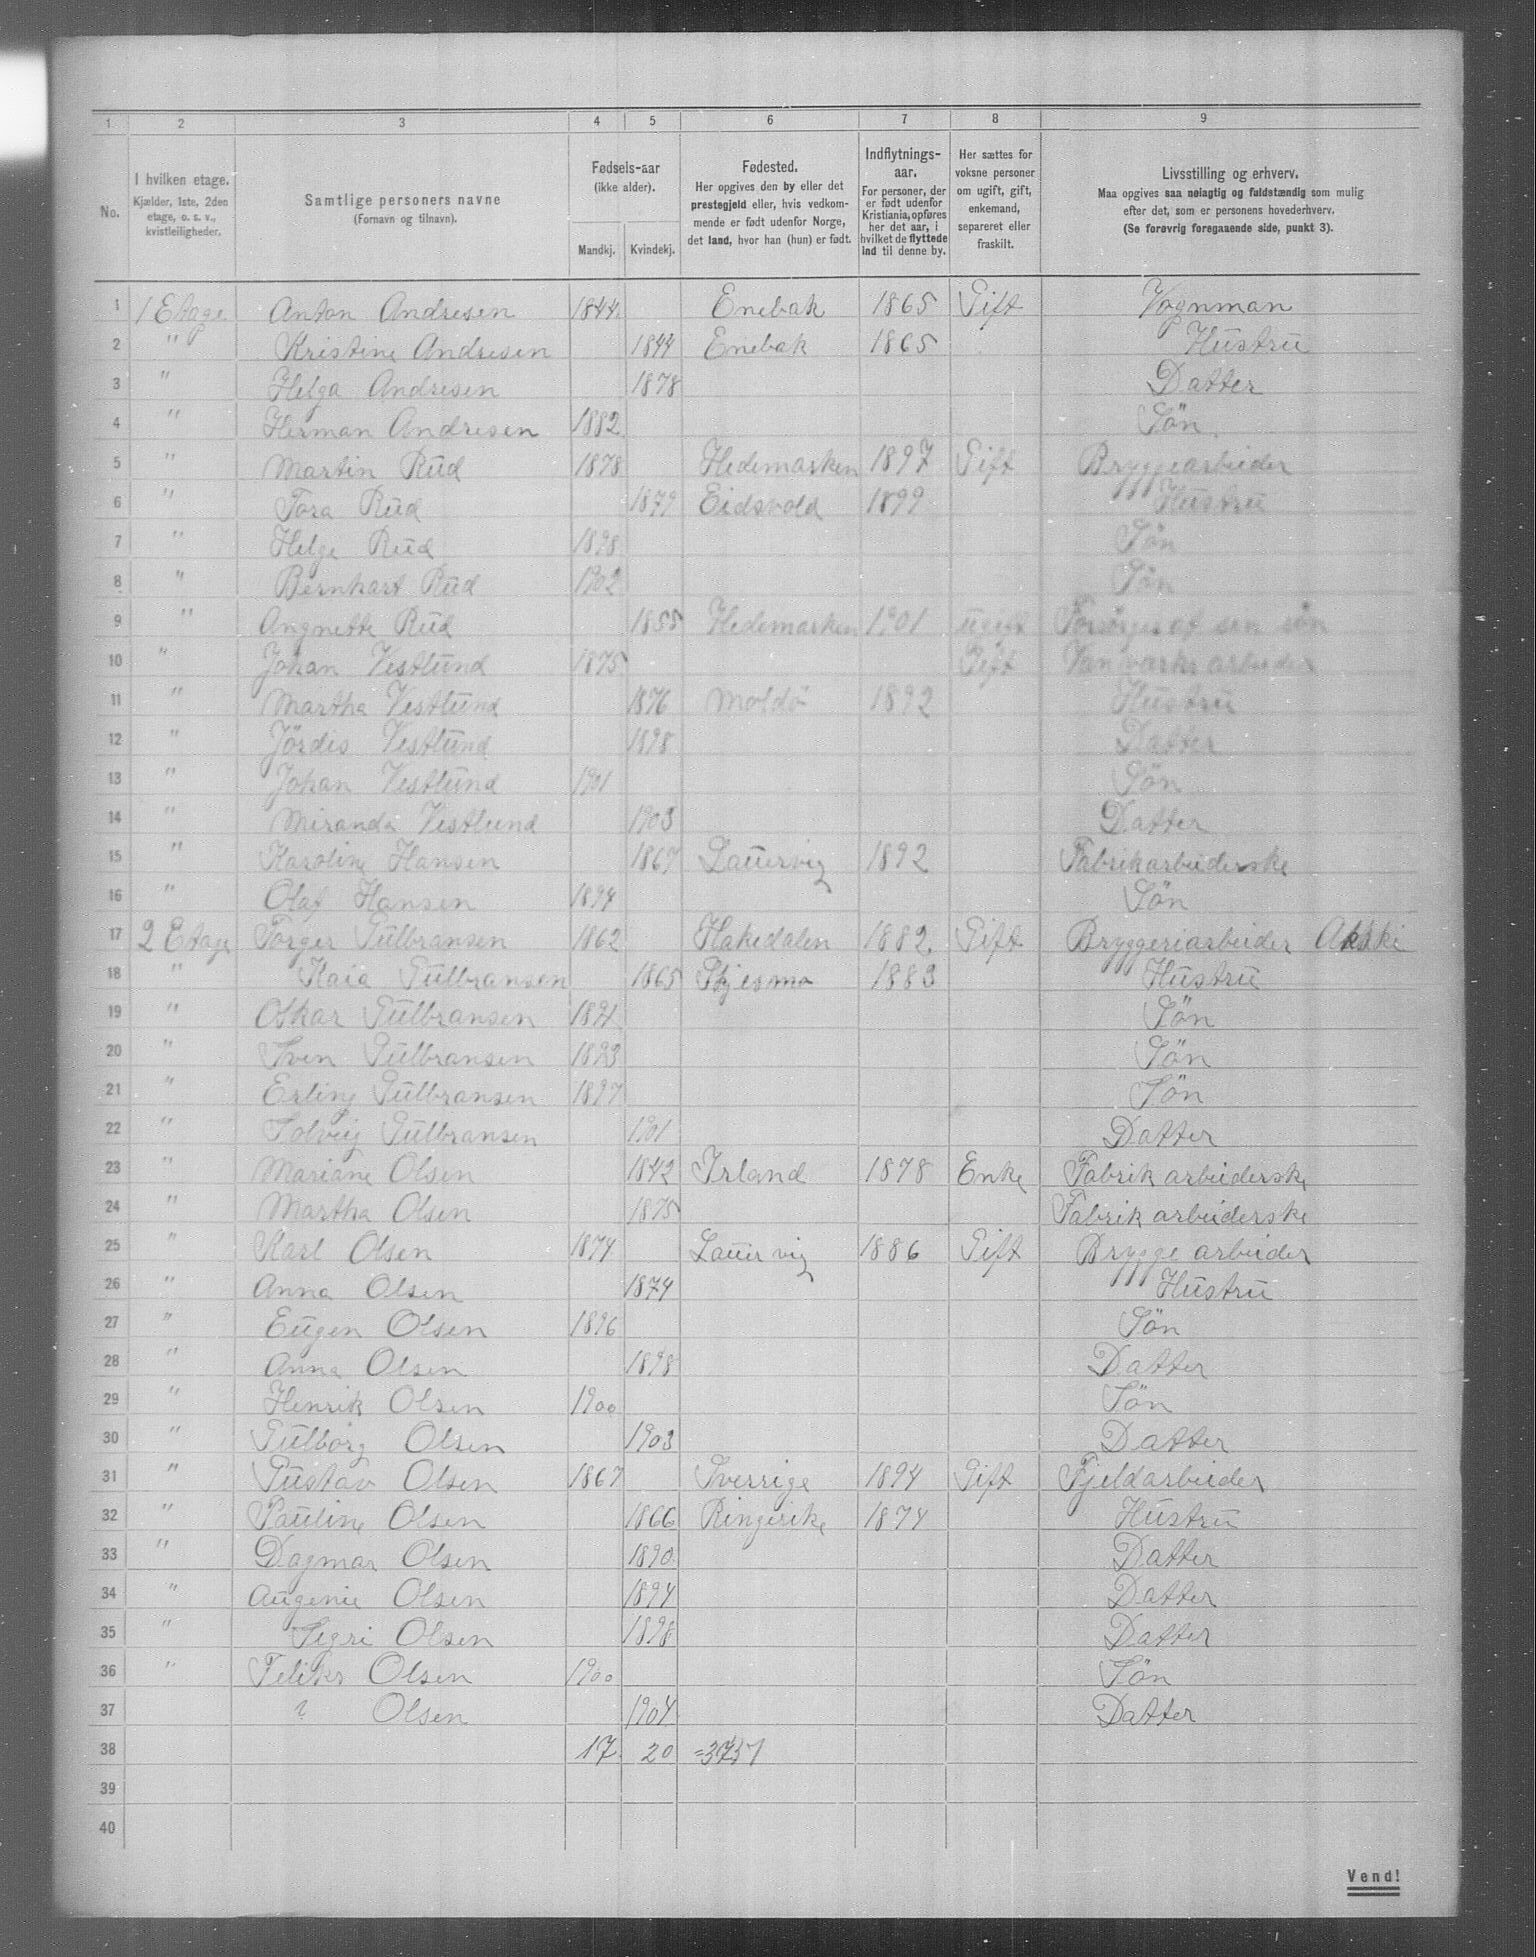 1 2 3 4 5 6 7 8 9
No.
I hvilken etage.
Kjælder, 1ste, 2den
etage, o. s. v.,
kvistleiligheder.
Samtlige personers navne
(Fornavn og tilnavn).
Fødsels-aar
(ikke alder).
Mandkj. Kvindekj.
Fødested.
Her opgives den by eller det
prestegjeld eller, hvis vedkom-
mende er født udenfor Norge,
det land, hvor han (hun) er født.
Indflytnings-
aar.
For personer, der
er født udenfor
Kristiania, opføres
her det aar, i
hvilket de flyttede
ind til denne by.
Her sættes for
voksne personer
om ugift, gift,
enkemand,
separeret eller
fraskilt.
Livsstilling og erhverv.
Maa opgives saa nøiagtig og fuldstændig som mulig
efter det, som er personens hovederhverv.
(Se forøvrig foregaaende side, punkt 3).
1 1 Etage Anton Andresen 1844 Enebak 1865 Gift Vognman
2 " Kristine Andresen 1844 Enebak 1865 Hustru
3 " Helga Andresen 1878 Datter
4 " Herman Andresen 1882 Sön
5 " Martin Rud 1878 Hedemarken 1897 Gift Bryggearbeider
6 " Tora Rud 1879 Eidsvold 1899 Hustru
7 " Helge Rud 1898 Sön
8 " Bernhart Rud 1902 Sön
9 " Angnette Rud 1855 Hedemarken 1901 ugift Forsörges af sen sön
10 " Johan Vestlund 1875 Gift Vanværks arbeider
11 " Martha Vestlund 1876 Moldö 1892 Hustru
12 " Jördis Vestlund 1898 Datter
13 " Johan Vestlund 1901 Sön
14 " Miranda Vestlund 1903 Datter
15 " Karoline Hansen 1867 Laurvig 1892 Fabrikarbeiderske
16 " Olaf Hansen 1894 Sön
17 2 Etage Torger Gulbransen 1862 Hakedalen 1882 Gift Bryggeriarbeider
18 " Kaia Gulbransen 1865 Skjesmo 1883 Hustru
19 " Oskar Gulbransen 1891 Sön
20 " Sven Gulbransen 1893 Sön
21 " Erling Gulbransen 1897 Sön
22 " Solveig Gulbransen 1901 Datter
23 " Mariane Olsen 1842 Irland 1878 Enke Fabrik arbeiderske
24 " Martha Olsen 1875 Fabrik arbeiderske
25 " Karl Olsen 1874 Laurvig 1886 Gift Brygge arbeider
26 " Anna Olsen 1874 Hustru
27 " Eugen Olsen 1896 Sön
28 " Anna Olsen 1898 Datter
29 " Henrik Olsen 1900 Sön
30 " Gulborg Olsen 1903 Datter
31 " Gustav Olsen 1867 Sverrige 1894 Gift Fjeldarbeider
32 " Pauline Olsen 1866 Ringerike 1874 Hustru
33 " Dagmar Olsen 1890 Datter
34 " Augenie Olsen 1894 Datter
35 " Segri Olsen 1898 Datter
36 " Feliks Olsen 1900 Sön
37 ? Olsen 1904 Datter
38 17 20
39
40
Vend!